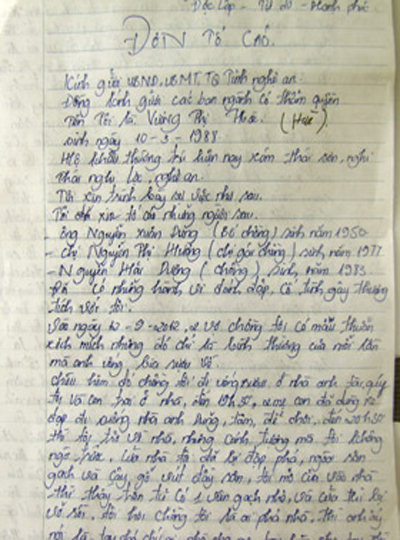 Độc lập - Tự do - Hạnh phúc
ĐƠN TỐ CÁO.
Kính gửi UBND, UBMT, TQ Tỉnh nghệ an.
Đồng kính gửi các ban ngành có thẩm quyền
Tên Tôi là Vương Thị Thái. (Huế)
sinh ngày 10-3-1988.
Hộ khẩu thường trú hiện nay xóm thái sơn, nghi
thái nghi lộc, nghệ an.
Tôi xin trình bày sự việc như sau.
Tôi xin tố cáo những người sau.
- ông Nguyễn Xuân Dương (Bố chồng) sinh năm 1950
- chị Nguyễn Thị Hương (chị gái chồng) sinh, năm 1977
- Nguyễn Hải Dương (chồng) sinh, năm 1983
Đã có những hành vi đánh đập, cố tình gây thương
tích với tôi.
Vào ngày 12-9-2012, 2 vợ chồng tôi có mâu thuẫn
xích mích nhưng đó chỉ là bình thường của mỗi lần
mà anh uống bia rượu về.
Chiều hôm đó chồng tôi đi uống rượu, ở nhà anh
tôi và con trai ở nhà, đến 19h30, 2 mẹ con đã dùng xe
đạp đi xuống nhà anh Dũng, Tâm, để chơi, đến 20h30
thì tôi trở về nhà, nhưng cảnh tượng mà tôi không
ngờ trước. Cửa nhà tôi đã bị đập phá, ngoài sân
gạch và cây, gỗ vứt đầy sân, tôi mở cửa vào nhà
thì thấy trên ti có 1 viên gạch nhỏ, và cửa thì bị
vỡ sẵn. tôi hỏi chồng tôi là ai phá nhà. Thì anh ấy